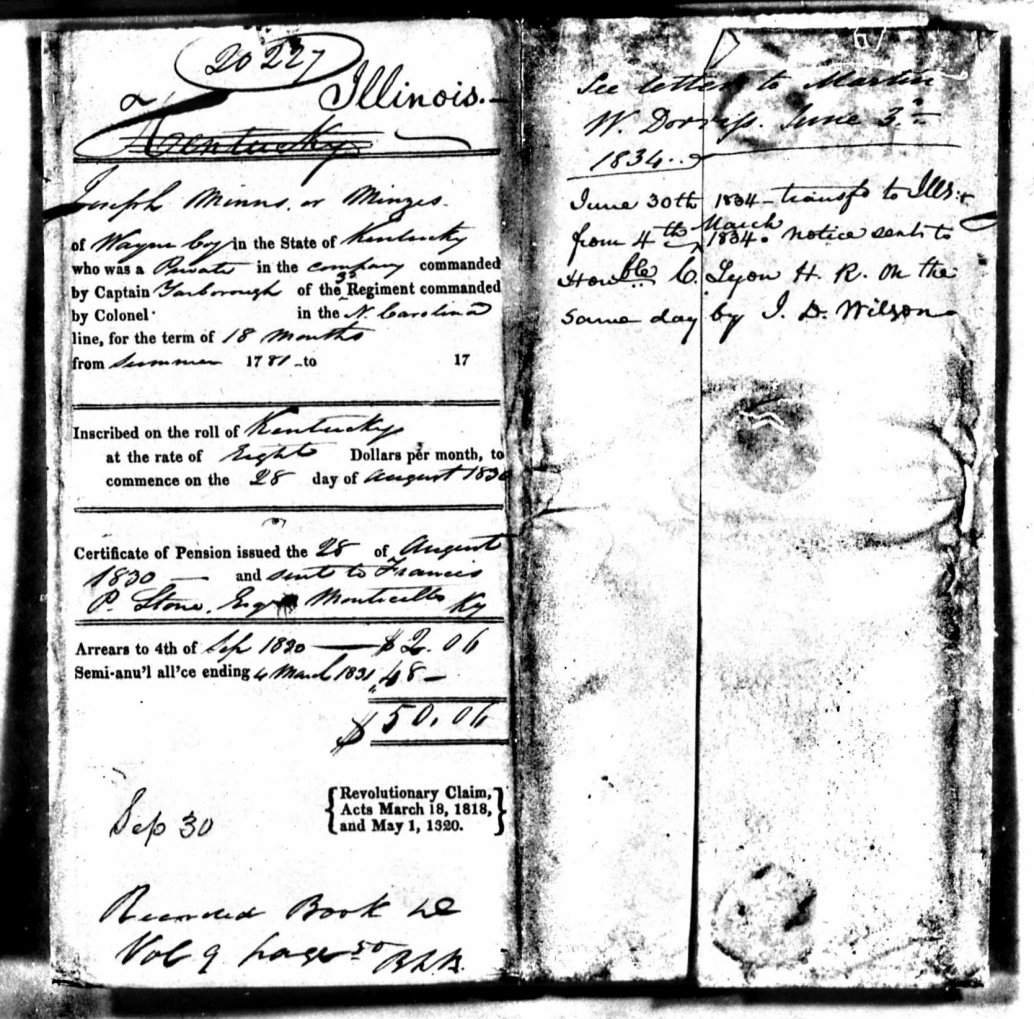 20227
Illinois.
Kentucky
Joseph Minns. or Minges.
of Wayne Coy in the State of Kentucky
who was a Private in the company commanded
by Captain Yarborough of the 3rd Regiment commanded
by Colonel in the N. Carolina
line, for the term of 18 months
from summer 1781 to 17
Inscribed on the roll of Kentucky
at the rate of Eight Dollars per month, to
commence on the 28 day of august 1830
Certificate of Pension issued the 28 of August
1830 — and sent to Francis
P. Stone, Esqr Monticello Ky
Arrears to 4th of Sep 1830 — $2.06
Semi-anu'l all'ce ending 4 March 1831 48 —
$50.06
{Revolutionary Claim,
Acts March 18, 1818,
and May 1, 1820.}
Sep 30
Recorded Book
Vol 9 page 50
See letter to Martin
W. Dorris. June 3rd
1834.
June 30th 1834 – transfd to Ills.
from 4th March 1834. notice sent to
Honble C. Lyon H. R. on the
same day by J. D. Wilson